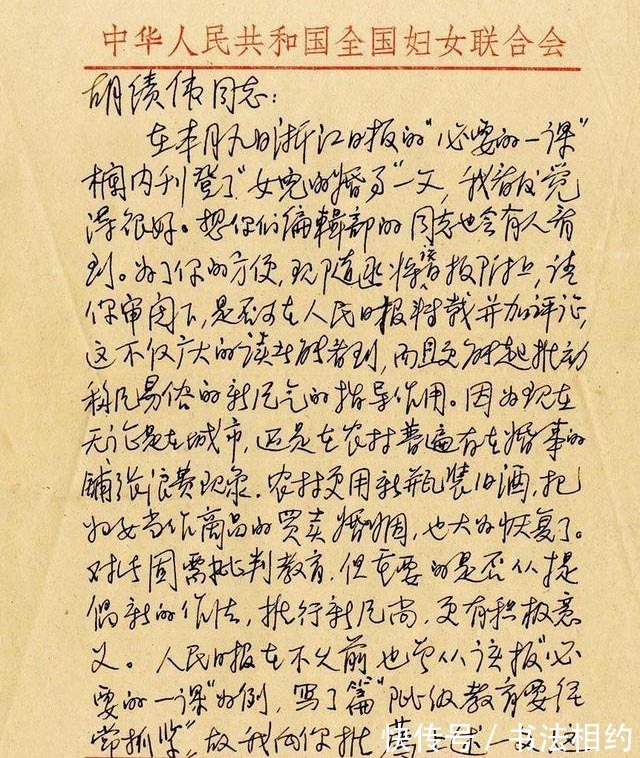 中华人民共和国全国妇女联合会
胡绩伟同志：
在本月九日浙江日报的“必要的一课”
栏内刊登了“女儿的婚事”一文，我看后觉
得很好。想你们编辑部的同志也会有人看
到。为了你的方便，现随函将报附上，请
你审阅下，是否可在人民日报转载并加评论，
这不仅广大的读者能看到，而且更能起推动
移风易俗的新风气的指导作用。因为现在
无论是在城市，还是在农村普遍存在婚事的
铺张浪费现象。农村更用新瓶装旧酒，把
妇女当作商品的买卖婚姻，也大为恢复了。
对此固需批判教育，但重要的是否从提
倡新的作法，推行新风尚，更有积极意
义。人民日报在不久前也曾从该报“必
要的一课”为例，写了篇“阶级教育要经
常抓紧”故我向你推荐上述一文这
快传号／书法相约